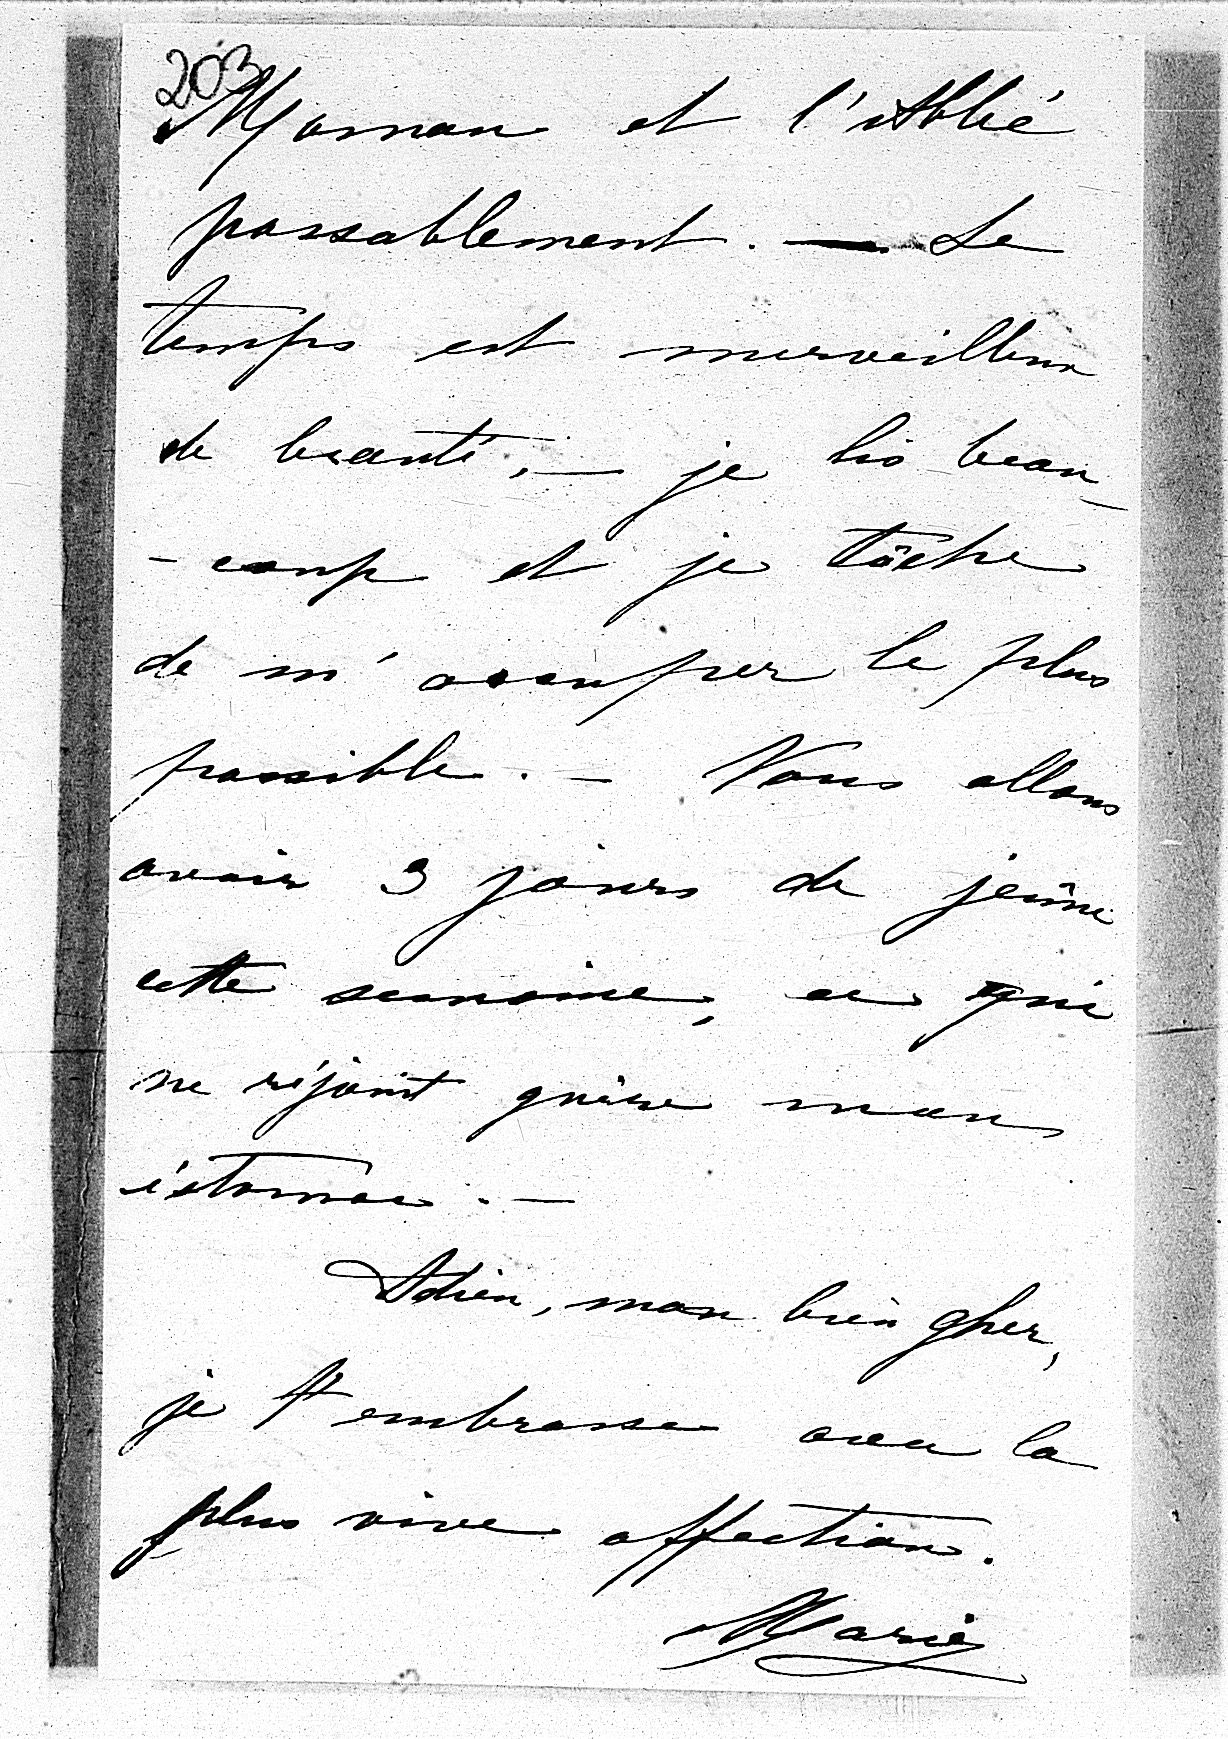 203
Maman et l'Abbé
passablement. — Le
temps est merveilleux
de beauté, — je lis beau-
-coup et je tâche
de m'occuper le plus
possible. — Nous allons
avoir 3 jours de jeûne
cette semaine, ce qui
ne réjouit guère mon
estomac. —
Adieu, mon bien cher,
je t'embrasse avec la
plus vive affection.
Marie